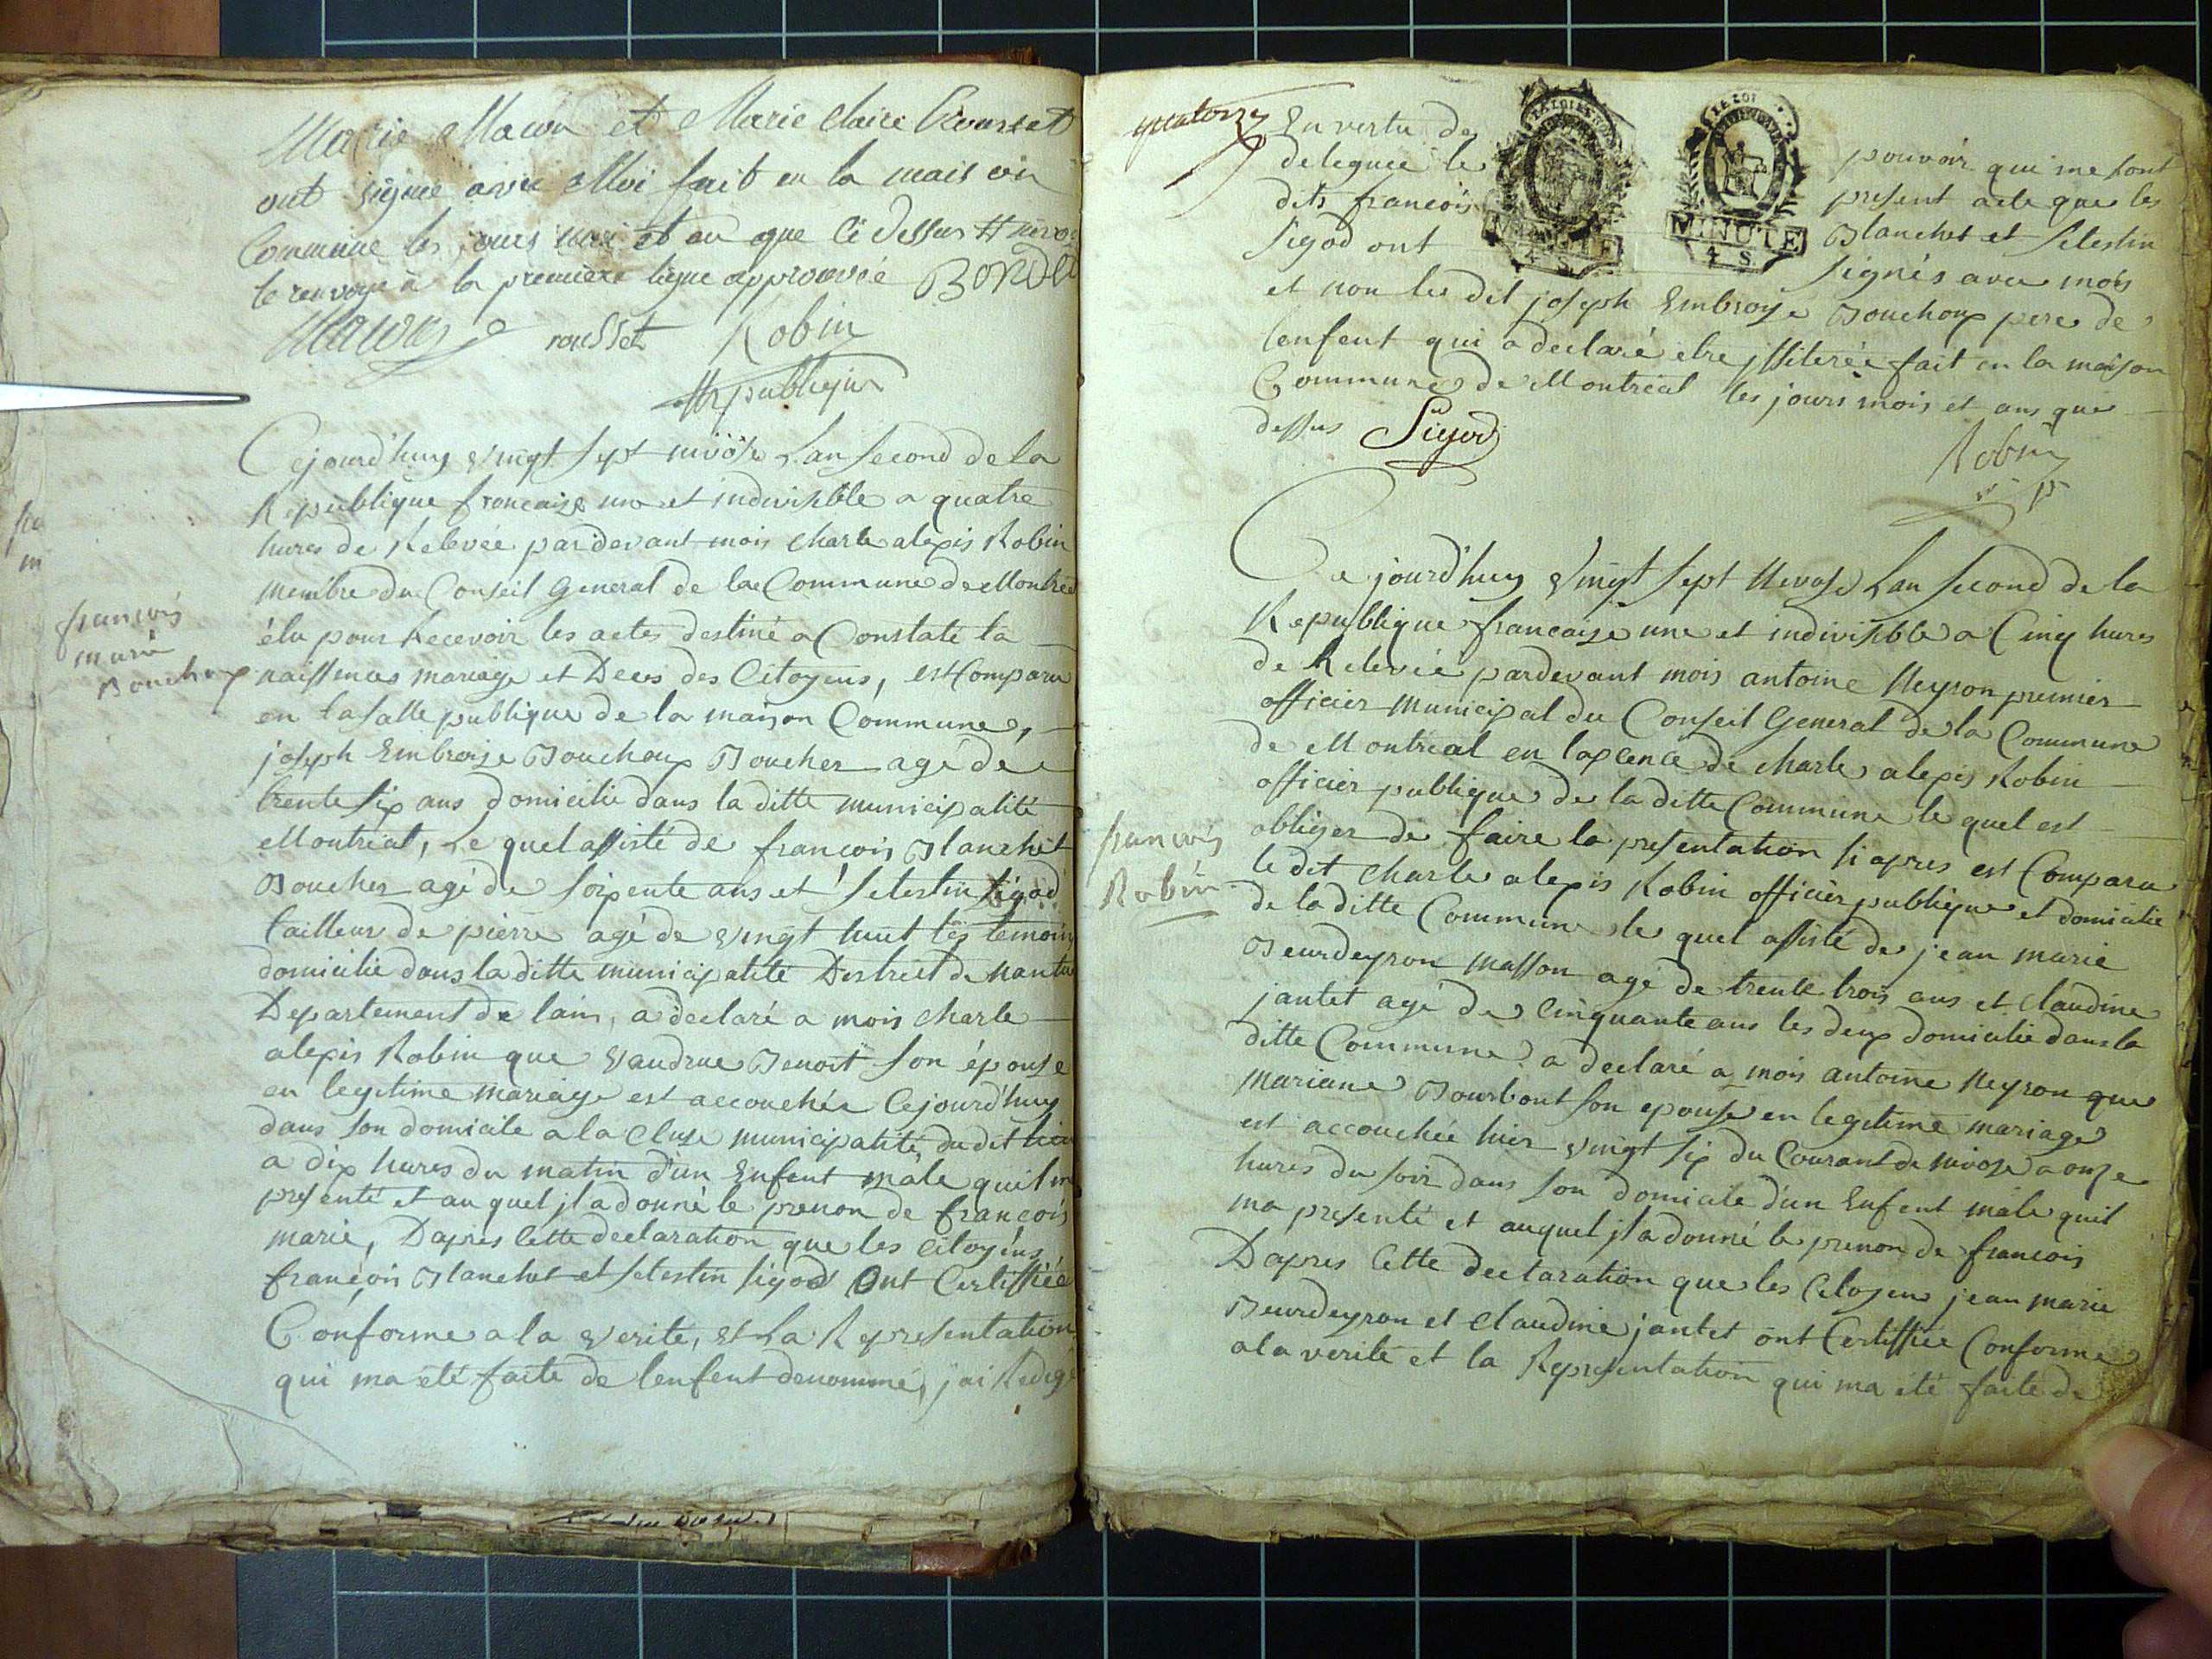 Marie Macon et Marie Claire Rousset
ont signié avec Moi fait en la maison
Commune les jours mois et an que Ci dessus
le renvoye à la premiere ligne approuvée BONDET
rousset Robin
publique
françois
marie
Bouchoux
Cejourd'huy vingt sept nivôse Lan Second de la
Republique francaise une et indivisible a quatre
hures de Relevée pardevant mois charle alexis Robin
membre du Conseil General de la Commune de Montreal
élu pour Recevoir les actes destiné a Constate la
naissences mariage et Deces des Citoyens, est Comparu
en la salle publique de la maison Commune,
joseph Embroise Bouchoux Boucher agé de
trente six ans domicilie dans la ditte municipalité
Montreal, Le quel assisté de francois Blanchet
Boucher agé de soixente ans et Selestin Sigod
tailleur de pierre agé de vingt huit les temoin
domicilie dans la ditte municipalité District de Nantua
Departement de lain, a declaré a mois charle
alexis Robin que Vaudrue Benoit son épouse
en legitime mariage est accouchée Cejourd'huy
dans son domicile a la Cluse municipalité du dit lieu
a dix hures du matin d'un Enfent male quil m
presenté et au quel jl a donné le prenon de françois
marie, Dapres Cette declaration que les Citoyens
françois Blanchet et Selestin Sigod Ont Certiffiée
Conforme a la verite, et La Representation
qui ma été faite de lenfent denommé, jai Redigé
quatorze
En vertu des pouvoir qui me sont
deleguée le present acte que les
dits françois Blanchet et Selestin
Sigod ont signés avec mois
LA LOI LE ROI
MINUTE MINUTE
4 S. 4 S.
et non le dit joseph Embroise Bouchoux pere de
lenfent qui a declaré etre jlliterée fait en la maison
Commune de Montreal les jours mois et ans que
dessus Sigod
Robin
Ce jourd'huy vingt sept Nivose Lan Second de la
Republique francaise une et indivisible a Cinq hures
de Relevée pardevant mois antoine Neyron premier
officier municipal du Conseil General de la Commune
de Montreal en lapcence de charle alexis Robin
officier publique de la ditte Commune le quel est
françois
Robin
obliger de faire la presentation si apres est Comparu
le dit charle alexis Robin officier publique et domicilie
de la ditte Commune le quel assisté de jean marie
Beurdeyron masson agé de trente trois ans et Claudine
jantet agé de Cinquante ans les deux domicilie dans la
ditte Commune a declaré a mois antoine Neyron que
Mariane Bourbont son epouse en legitime mariage
est accouchée hier vingt six du Courant de nivose a onze
hures du soir dans son domicile d'un Enfent male quil
ma presenté et auquel jl a donné le prenon de francois
Dapres Cette declaration que les Citoyens jean marie
Beurdeyron et Claudine jantet ont Certiffiée Conforme
a la verité et la Representation qui ma été faite de